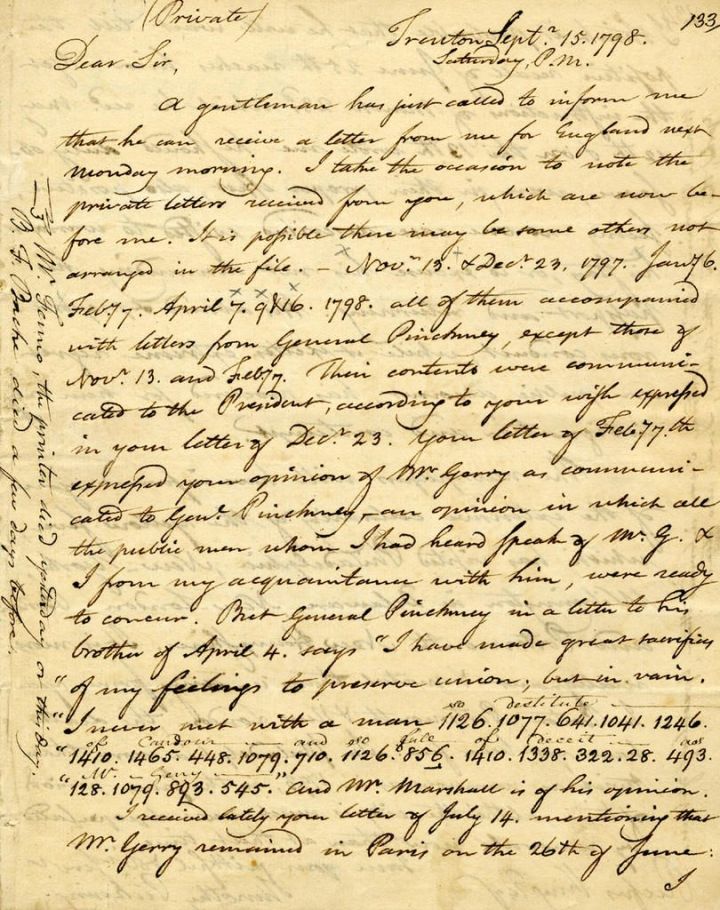 (Private)
133
Trenton Septr. 15. 1798.
Saturday, P.M.
Dear Sir,
A gentleman has just called to inform me
that he can receive a letter from me for England next
monday morning. I take the occasion to note the
private letters received from you, which are now be-
fore me. It is possible there may be some others not
arranged in the file. — Novr. 13. & Decr. 23. 1797. Jany 6.
Feby 7. April 7. 9 & 16. 1798. all of them accompanied
with letters from General Pinckney, except those of
Novr. 13. and Feby 7. Their contents were communi-
cated to the President, according to your wish expressed
in your letter of Decr. 23. Your letter of Feby 7.th
expressed your opinion of Mr. Gerry as communi-
cated to Genl. Pinckney, — an opinion in which all
the public men whom I had heard speak of Mr. G. &
I from my acquaintance with him, were ready
to concur. But General Pinckney in a letter to his
brother of April 4. says "I have made great sacrifices
" of my feelings to preserve union; but in vain.
so destitute
" I never met with a man 1126. 1077. 641. 1041. 1246.
of Candour and so full of Deceit as
" 1410. 1465. 448. 1079. 710. 1126. 856. 1410. 1338. 322. 28. 493.
Mr. Gerry
" 128. 1079. 893. 545." And Mr. Marshall is of his opinion.
I received lately your letter of July 14. mentioning that
Mr. Gerry remained in Paris on the 26th of June:
I
Mr. Fenno, the printer died yesterday or this day.
B. F. Bache died a few days before.